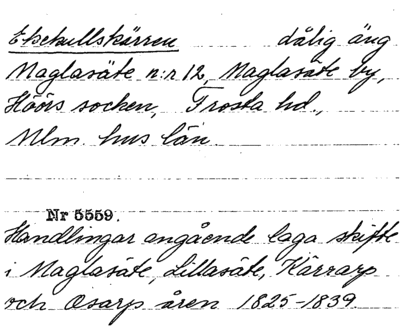 Ekekullskärren dålig äng
Maglasäte n:r 12, Maglasäte by,
Höörs socken, Frosta hd.,
Mlm. hus län
Nr 5559.
Handlingar angående laga skifte
i Maglasäte, Lillasäte, Kärrarp
och Osarp åren 1825-1839.